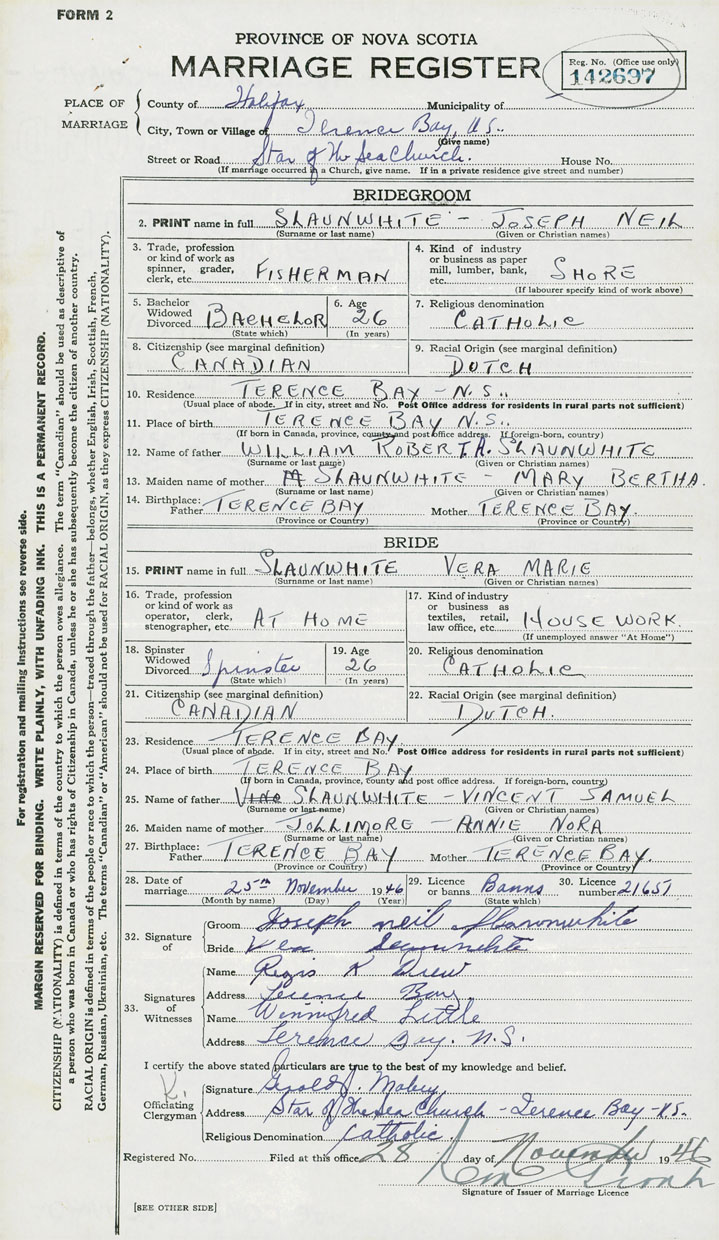 FORM 2
PROVINCE OF NOVA SCOTIA
MARRIAGE REGISTER
Reg. No. (Office use only)
142697
PLACE OF MARRIAGE
County of Halifax Municipality of
City, Town or Village of Terence Bay, N.S.
(Give name)
Street or Road Star of the Sea Church. House No.
(If marriage occurred in a Church, give name. If in a private residence give street and number)
BRIDEGROOM
2. PRINT name in full SLAUNWHITE - JOSEPH NEIL
(Surname or last name) (Given or Christian names)
3. Trade, profession or kind of work as spinner, grader, clerk, etc. FISHERMAN
4. Kind of industry or business as paper mill, lumber, bank, etc. SHORE
(If labourer specify kind of work above)
5. Bachelor Widowed Divorced BACHELOR
(State which)
6. Age 26
(In years)
7. Religious denomination
CATHOLIC
8. Citizenship (see marginal definition)
CANADIAN
9. Racial Origin (see marginal definition)
DUTCH
10. Residence TERENCE BAY - N.S..
(Usual place of abode. If in city, street and No. Post Office address for residents in rural parts not sufficient)
11. Place of birth TERENCE BAY N.S..
(If born in Canada, province, county and post office address. If foreign-born, country)
12. Name of father WILLIAM ROBERT A. SLAUNWHITE
(Surname or last name) (Given or Christian names)
13. Maiden name of mother SLAUNWHITE - MARY BERTHA.
(Surname or last name) (Given or Christian names)
14. Birthplace: Father TERENCE BAY Mother TERENCE BAY.
(Province or Country) (Province or Country)
BRIDE
15. PRINT name in full SLAUNWHITE VERA MARIE
(Surname or last name) (Given or Christian names)
16. Trade, profession or kind of work as operator, clerk, stenographer, etc. AT HOME
17. Kind of industry or business as textiles, retail, law office, etc. HOUSE WORK.
(If unemployed answer "At Home")
18. Spinster Widowed Divorced Spinster
(State which)
19. Age 26
(In years)
20. Religious denomination
CATHOLIC
21. Citizenship (see marginal definition)
CANADIAN
22. Racial Origin (see marginal definition)
DUTCH.
23. Residence TERENCE BAY.
(Usual place of abode. If in city, street and No. Post Office address for residents in rural parts not sufficient)
24. Place of birth TERENCE BAY
(If born in Canada, province, county and post office address. If foreign-born, country)
25. Name of father SLAUNWHITE - VINCENT SAMUEL
(Surname or last name) (Given or Christian names)
26. Maiden name of mother JOLLIMORE - ANNIE NORA
(Surname or last name) (Given or Christian names)
27. Birthplace: Father TERENCE BAY Mother TERENCE BAY.
(Province or Country) (Province or Country)
28. Date of marriage 25th November 1946
(Month by name) (Day) (Year)
29. Licence or banns Banns
(State which)
30. Licence number 21651
32. Signature of
Groom Joseph neil Slaunwhite
Bride Vera Slaunwhite
33. Signatures of Witnesses
Name Regis K Drew
Address Terence Bay
Name Winnifred Little
Address Terence Bay. N.S.
I certify the above stated particulars are true to the best of my knowledge and belief.
Officiating Clergyman
Signature Gerald J.
Address Star of the sea Church - Terence Bay - N.S.
Religious Denomination Catholic.
Registered No. Filed at this office 28 day of November 1946
Signature of Issuer of Marriage Licence
[SEE OTHER SIDE]
For registration and mailing instructions see reverse side.
MARGIN RESERVED FOR BINDING. WRITE PLAINLY, WITH UNFADING INK. THIS IS A PERMANENT RECORD.
CITIZENSHIP (NATIONALITY) is defined in terms of the country to which the person owes allegiance. The term "Canadian" should be used as descriptive of
a person who was born in Canada or who has rights of Citizenship in Canada, unless he or she has subsequently become the citizen of another country.
RACIAL ORIGIN is defined in terms of the people or race to which the person—traced through the father—belongs, whether English, Irish, Scottish, French,
German, Russian, Ukrainian, etc. The terms "Canadian" or "American" should not be used for RACIAL ORIGIN, as they express CITIZENSHIP (NATIONALITY).